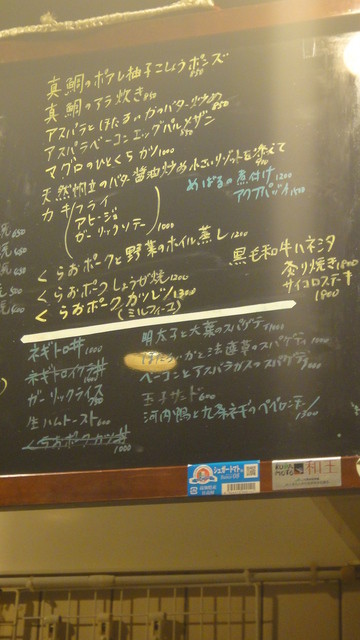 真鯛のポアレ柚子こしょうポンズ 950
真鯛のアラ炊き 950
アスパラとほたるいかのバター炒め 850
アスパラベーコンエッグパルメザン
マグロのひとくちカツ 1000
天然帆立のバター醤油炒め 小さいリゾットを添えて
カキ フライ
アヒージョ
ガーリックソテー 1000
めばるの煮付け 1200
アクアパッツァ 1500
くらおポークと野菜のホイル蒸し 1200
くらおポークしょうが焼 1200
くらおポークカツレツ 1300
(ミルフィーユ)
黒毛和牛ハネシタ
炙り焼き 1800
サイコロステーキ
1800
ネギトロ丼 1000
ネギトロイクラ丼
ガーリックライス
生ハムトースト 600
1000
明太子と大葉のスパゲティ 1000
ほたるいかと法蓮草のスパゲティ
ベーコンとアスパラガスのスパゲティ
玉子サンド 600
河内鴨と九条ネギのペペロンチーノ 1300
シュガートマト